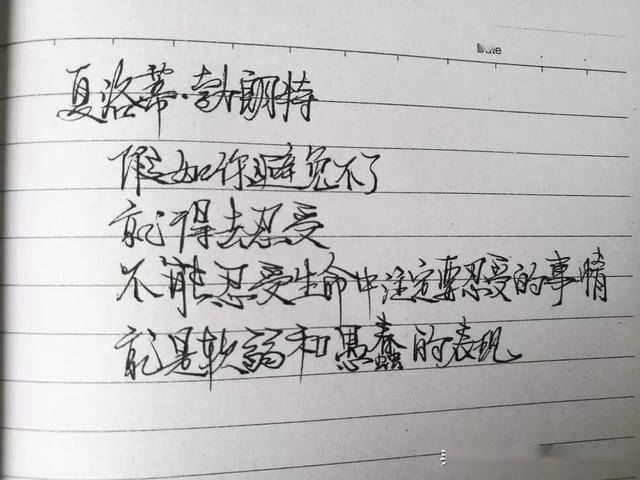 Date
夏洛蒂·勃朗特
假如你避免不了
就得去忍受
不能忍受生命中注定要忍受的事情
就是软弱和愚蠢的表现